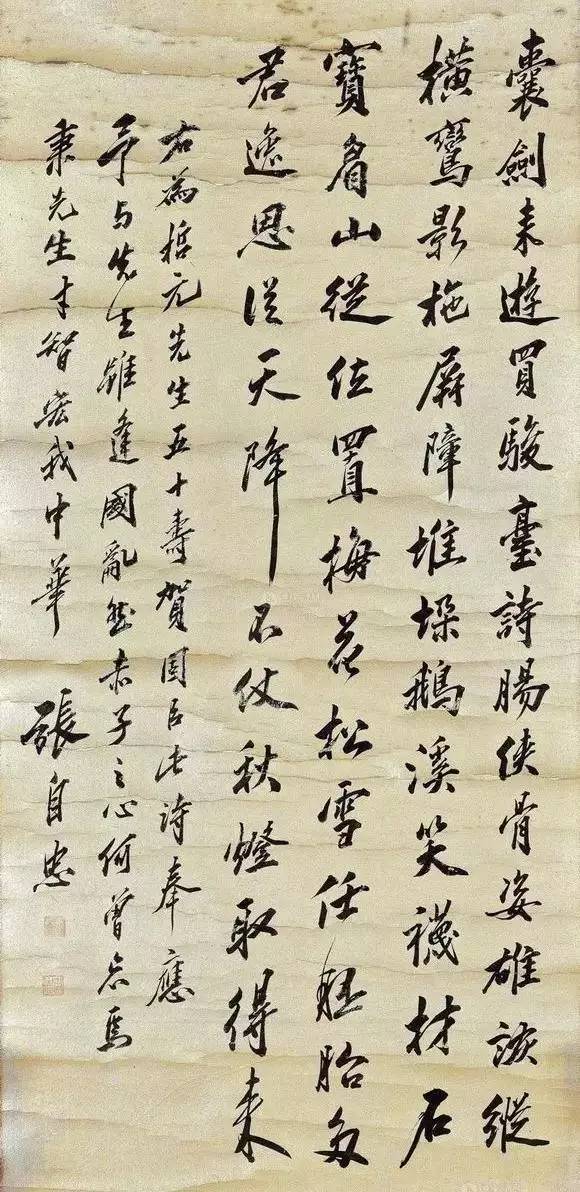 囊劍来遊買駿臺詩腸俠骨姿雄詼縱
橫鸞影拖屏障堆垛鵝溪笑襪材石
寶眉山從位置梅花松雪任胚胎多
君逸思從天降不仗秋燈取得来
右為哲元先生五十壽賀此詩奉應
予与先生雖逢國亂然赤子之心何曾忘焉
秉先生才智宏我中華
張自忠